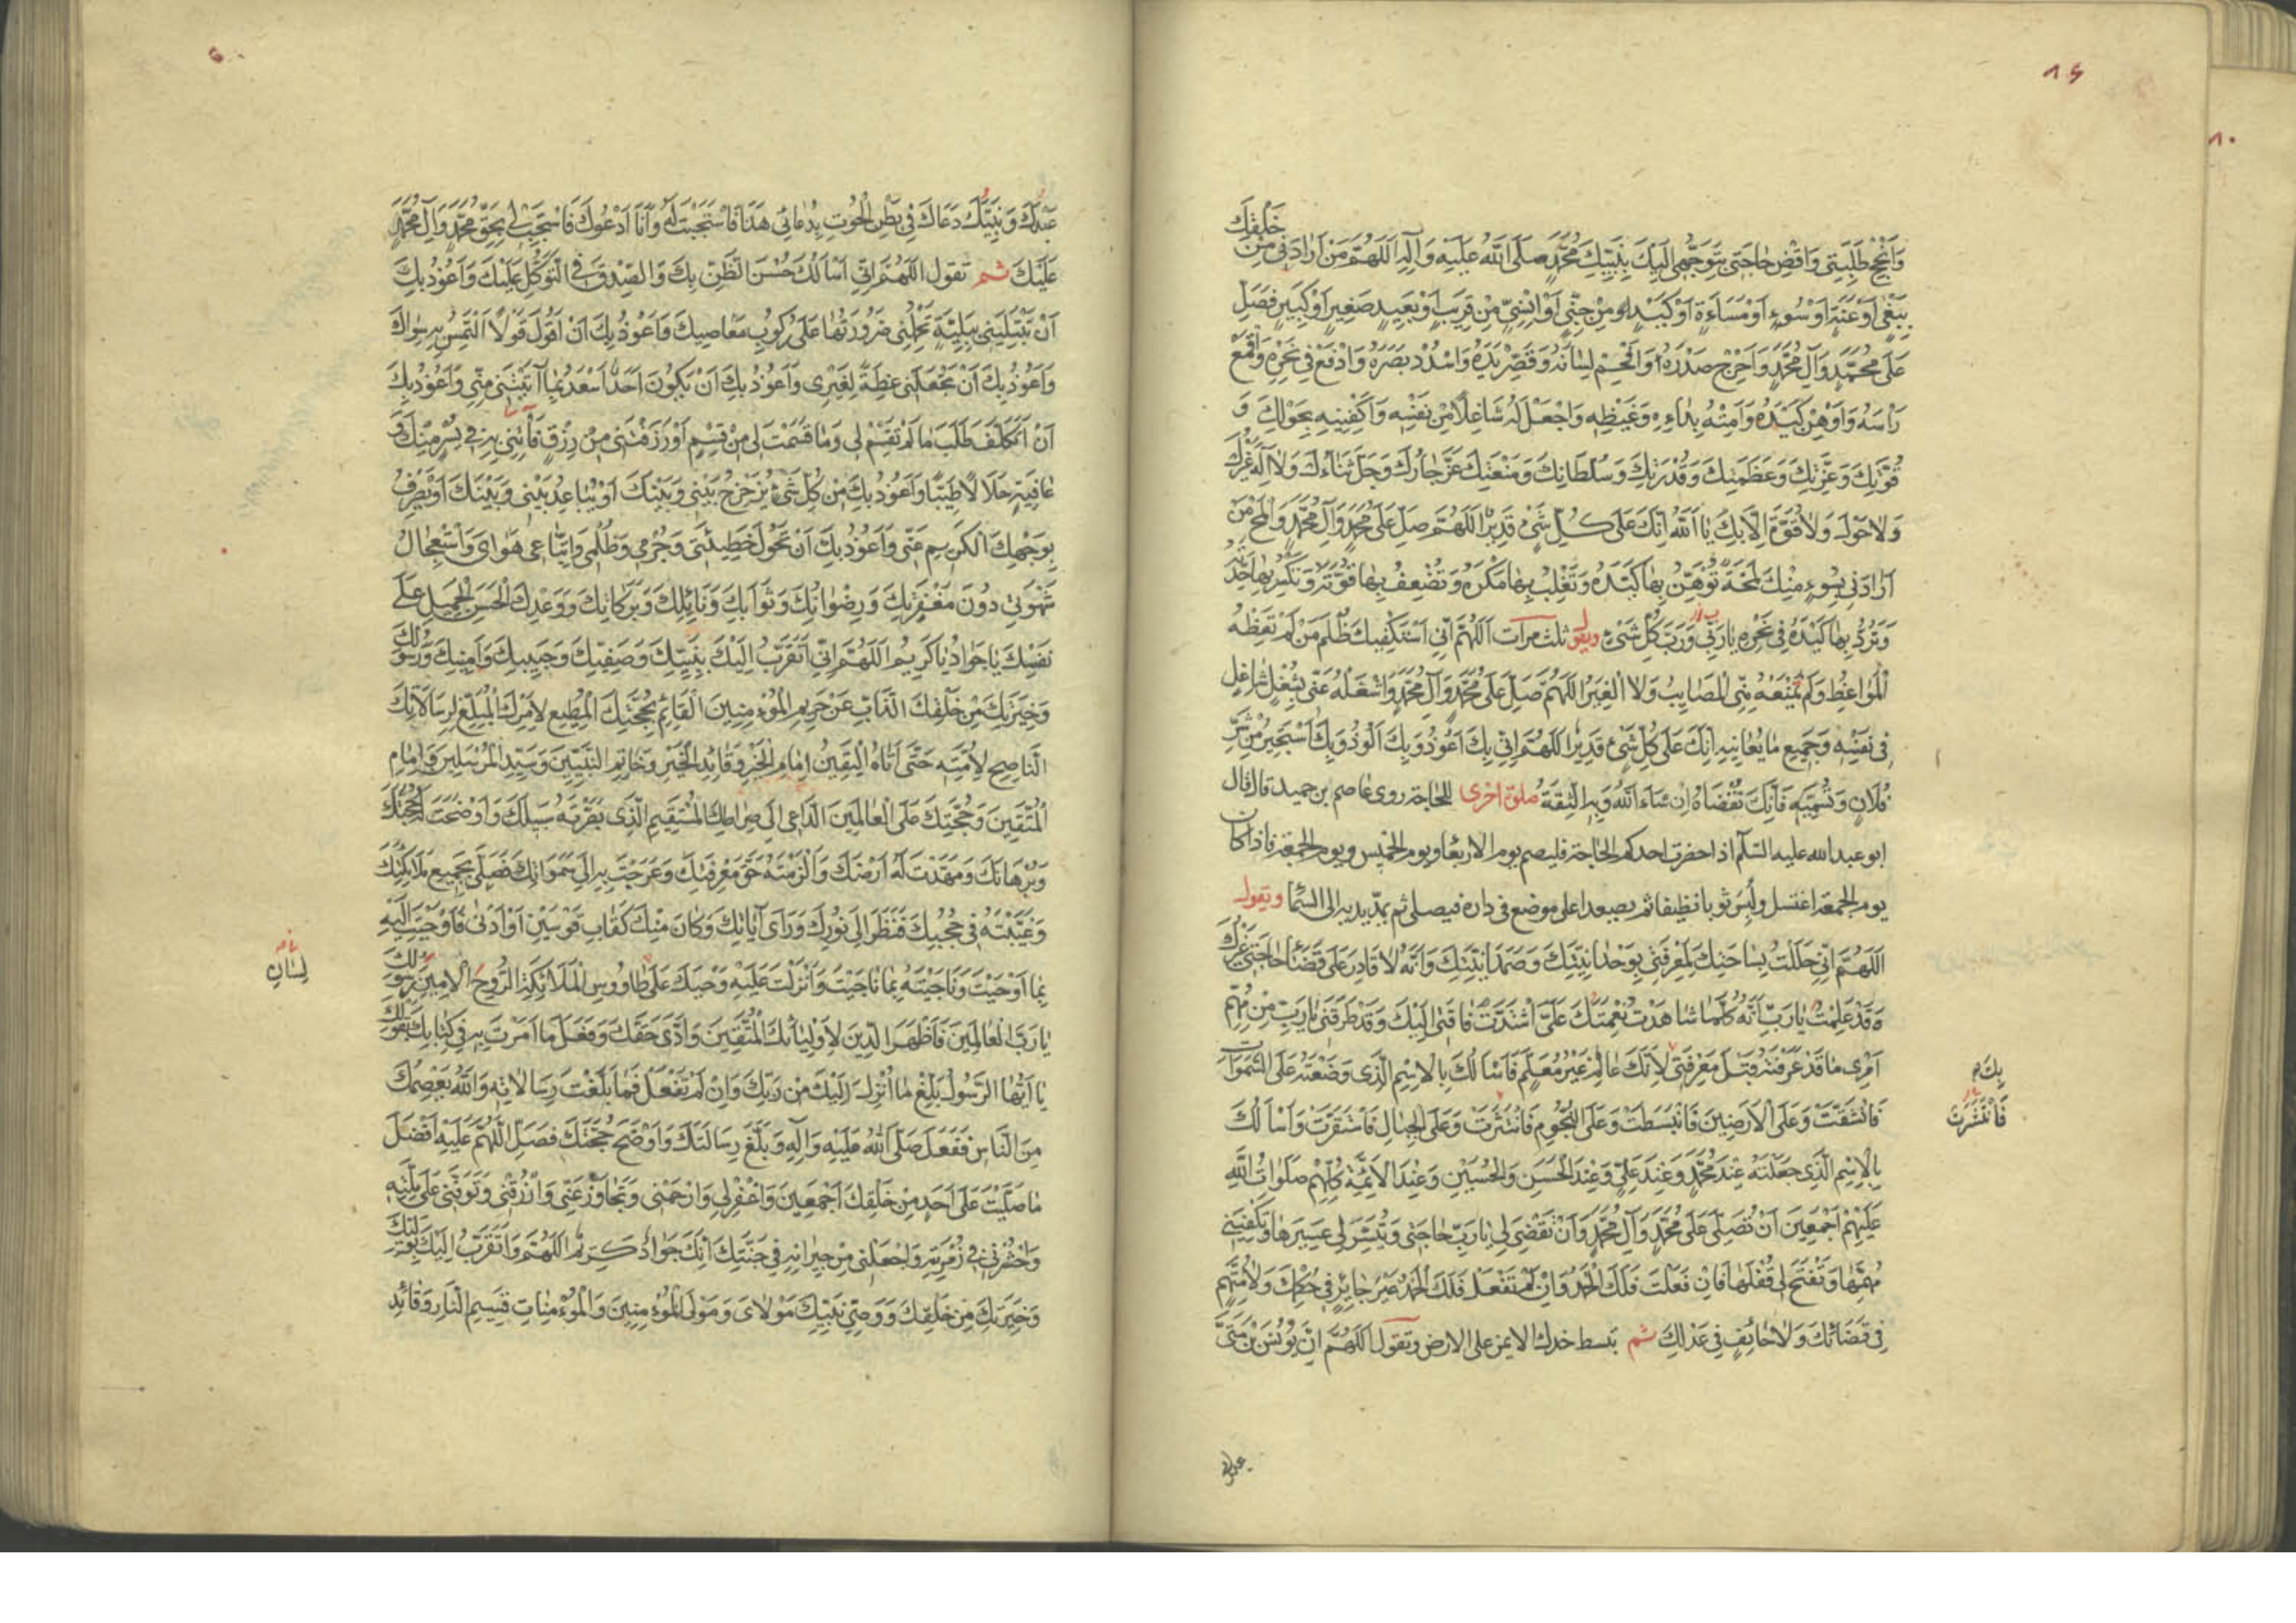 وَاَنْجِحْ طَلِبَتِي وَاقْضِ حَاجَتِي بِتَوَجُّهِي اِلَيْكَ بِنَبِيِّكَ مُحَمَّدٍ صَلَّى اللهُ عَلَيْهِ وَآلِهِ اَللّٰهُمَّ مَنْ اَرَادَنِي مِنْ خَلْقِكَ
بِبَغْيٍ اَوْ عَنَتٍ اَوْ سُوءٍ اَوْ مَسَاءَةٍ اَوْ كَيْدٍ مِنْ جِنِّيٍّ اَوْ اِنْسِيٍّ مِنْ قَرِيبٍ اَوْ بَعِيدٍ صَغِيرٍ اَوْ كَبِيرٍ فَصَلِّ
عَلَى مُحَمَّدٍ وَآلِ مُحَمَّدٍ وَاَحْرِجْ صَدْرَهُ وَاَفْحِمْ لِسَانَهُ وَقَصِّرْ يَدَهُ وَاسْدُدْ بَصَرَهُ وَادْفَعْ فِي نَحْرِهِ وَاقْمَعْ
رَاْسَهُ وَاَوْهِنْ كَيْدَهُ وَاَمِتْهُ بِدَاءِهِ وَغَيْظِهِ وَاجْعَلْ لَهُ شَاغِلًا مِنْ نَفْسِهِ وَاكْفِنِيهِ بِحَوْلِكَ وَ
قُوَّتِكَ وَعِزَّتِكَ وَعَظَمَتِكَ وَقُدْرَتِكَ وَسُلْطَانِكَ وَمَنْعَتِكَ عَزَّ جَارُكَ وَجَلَّ ثَنَاءُكَ وَلَا اِلٰهَ غَيْرُكَ
وَلَا حَوْلَ وَلَا قُوَّةَ اِلَّا بِكَ يَا اَللهُ اِنَّكَ عَلَى كُلِّ شَيْءٍ قَدِيرٌ اَللّٰهُمَّ صَلِّ عَلَى مُحَمَّدٍ وَآلِ مُحَمَّدٍ وَالْمَحْ مَنْ
اَرَادَنِي بِسُوءٍ مِنْكَ لَمْحَةً تُوهِنُ بِهَا كَيْدَهُ وَتَغْلِبُ بِهَا مَكْرَهُ وَتُضْعِفُ بِهَا قُوَّتَهُ وَتَكْسِرُ بِهَا حِدَّتَهُ
وَتَرُدُّ بِهَا كَيْدَهُ فِي نَحْرِهِ يَا رَبِّي وَرَبَّ كُلِّ شَيْءٍ ويقول ثلث مرات اَللّٰهُمَّ اِنِّي اَسْتَكْفِيكَ ظُلْمَ مَنْ لَمْ تَعِظْهُ
الْمَوَاعِظُ وَلَمْ تَمْنَعْهُ مِنِّي الْمَصَايِبُ وَلَا الْغِيَرُ اَللّٰهُمَّ صَلِّ عَلَى مُحَمَّدٍ وَآلِ مُحَمَّدٍ وَاشْغَلْهُ عَنِّي بِشُغْلٍ شَاغِلٍ
فِي نَفْسِهِ وَجَمِيعِ مَا يُعَانِيهِ اِنَّكَ عَلَى كُلِّ شَيْءٍ قَدِيرٌ اَللّٰهُمَّ اِنِّي بِكَ اَعُوذُ وَبِكَ اَلُوذُ وَبِكَ اَسْتَجِيرُ مِنْ شَرِّ
فُلَانٍ وَتُسَمِّيهِ فَاِنَّكَ تُكْفَاهُ اِنْ شَاءَ اللهُ وَبِهِ الثِّقَةُ صلوة اخرى للحاجة روى عاصم بن حميد قال قال
ابو عبد الله عليه السّلم اذا حضرت احدكم الحاجة فليصم يوم الاربعاء ويوم الخميس ويوم الجمعة فاذا كان
يوم الجمعة اغتسل ولبس ثوبا نظيفا ثم يصعد اعلى موضع في داره فيصلي ثم يمدّ يديه الى السّماء ويقول
اَللّٰهُمَّ اِنِّي حَلَلْتُ بِسَاحَتِكَ لِمَعْرِفَتِي بِوَحْدَانِيَّتِكَ وَصَمَدَانِيَّتِكَ وَاَنَّهُ لَا قَادِرَ عَلَى قَضَاءِ حَاجَتِي غَيْرُكَ
وَقَدْ عَلِمْتُ يَا رَبِّ اَنَّهُ كُلَّمَا شَاهَدْتُ نِعْمَتَكَ عَلَيَّ اشْتَدَّتْ فَاقَتِي اِلَيْكَ وَقَدْ طَرَقَنِي يَا رَبِّ مِنْ مُهِمِّ
اَمْرِي مَا قَدْ عَرَفْتَهُ قَبْلَ مَعْرِفَتِي لِاَنَّكَ عَالِمٌ غَيْرُ مُعَلَّمٍ فَاَسْاَلُكَ بِالْاِسْمِ الَّذِي وَضَعْتَهُ عَلَى السَّمٰوَاتِ
فَانْشَقَّتْ وَعَلَى الْاَرَضِينَ فَانْبَسَطَتْ وَعَلَى النُّجُومِ فَانْتَثَرَتْ وَعَلَى الْجِبَالِ فَاسْتَقَرَّتْ وَاَسْاَلُكَ
بِالْاِسْمِ الَّذِي جَعَلْتَهُ عِنْدَ مُحَمَّدٍ وَعِنْدَ عَلِيٍّ وَعِنْدَ الْحَسَنِ وَالْحُسَيْنِ وَعِنْدَ الْاَئِمَّةِ كُلِّهِمْ صَلَوَاتُ اللهِ
عَلَيْهِمْ اَجْمَعِينَ اَنْ تُصَلِّيَ عَلَى مُحَمَّدٍ وَآلِ مُحَمَّدٍ وَاَنْ تَقْضِيَ لِي يَا رَبِّ حَاجَتِي وَتُيَسِّرَ لِي عَسِيرَهَا وَتَكْفِيَنِي
مُهِمَّهَا وَتَفْتَحَ لِي قُفْلَهَا فَاِنْ فَعَلْتَ فَلَكَ الْحَمْدُ وَاِنْ لَمْ تَفْعَلْ فَلَكَ الْحَمْدُ غَيْرَ جَائِرٍ فِي حُكْمِكَ وَلَا مُتَّهَمٍ
فِي قَضَائِكَ وَلَا حَائِفٍ فِي عَدْلِكَ ثم تبسط خدك الايمن على الارض وتقول اَللّٰهُمَّ اِنَّ يُونُسَ بْنَ مَتّٰى
بِكَ
فَانْتَشَرَتْ
عَبْدَكَ وَنَبِيَّكَ دَعَاكَ فِي بَطْنِ الْحُوتِ بِدُعَائِي هٰذَا فَاسْتَجَبْتَ لَهُ وَاَنَا اَدْعُوكَ فَاسْتَجِبْ لِي بِحَقِّ مُحَمَّدٍ وَآلِ مُحَمَّدٍ
عَلَيْكَ ثم تقول اَللّٰهُمَّ اِنِّي اَسْاَلُكَ حُسْنَ الظَّنِّ بِكَ وَالصِّدْقَ فِي التَّوَكُّلِ عَلَيْكَ وَاَعُوذُ بِكَ
اَنْ تَبْتَلِيَنِي بِبَلِيَّةٍ تَحْمِلُنِي ضَرُورَتُهَا عَلَى رُكُوبِ مَعَاصِيكَ وَاَعُوذُ بِكَ اَنْ اَقُولَ قَوْلًا اَلْتَمِسُ بِهِ سِوَاكَ
وَاَعُوذُ بِكَ اَنْ تَجْعَلَنِي عِظَةً لِغَيْرِي وَاَعُوذُ بِكَ اَنْ يَكُونَ اَحَدٌ اَسْعَدَ بِمَا آتَيْتَنِي مِنِّي وَاَعُوذُ بِكَ
اَنْ اَتَكَلَّفَ طَلَبَ مَا لَمْ تَقْسِمْ لِي وَمَا قَسَمْتَ لِي مِنْ قِسْمٍ اَوْ رَزَقْتَنِي مِنْ رِزْقٍ فَاْتِنِي بِهِ فِي يُسْرٍ مِنْكَ وَ
عَافِيَةٍ حَلَالًا طَيِّبًا وَاَعُوذُ بِكَ مِنْ كُلِّ شَيْءٍ يُزَحْزِحُ بَيْنِي وَبَيْنَكَ اَوْ يُبَاعِدُ بَيْنِي وَبَيْنَكَ اَوْ يَصْرِفُ
بِوَجْهِكَ الْكَرِيمِ عَنِّي وَاَعُوذُ بِكَ اَنْ تَحُولَ خَطِيئَتِي وَجُرْمِي وَظُلْمِي وَاتِّبَاعِي هَوَايَ وَاسْتِعْجَالُ
شَهْوَتِي دُونَ مَغْفِرَتِكَ وَرِضْوَانِكَ وَثَوَابِكَ وَنَائِلِكَ وَبَرَكَاتِكَ وَوَعْدِكَ الْحَسَنِ الْجَمِيلِ عَلَى
نَفْسِكَ يَا جَوَادُ يَا كَرِيمُ اَللّٰهُمَّ اِنِّي اَتَقَرَّبُ اِلَيْكَ بِنَبِيِّكَ وَصَفِيِّكَ وَحَبِيبِكَ وَاَمِينِكَ وَرَسُولِكَ
وَخِيَرَتِكَ مِنْ خَلْقِكَ الذَّابِّ عَنْ حَرِيمِ الْمُؤْمِنِينَ الْقَائِمِ بِحُجَّتِكَ الْمُطِيعِ لِاَمْرِكَ الْمُبَلِّغِ لِرِسَالَاتِكَ
النَّاصِحِ لِاُمَّتِهِ حَتَّى اَتَاهُ الْيَقِينُ اِمَامِ الْخَيْرِ وَقَائِدِ الْخَيْرِ وَخَاتِمِ النَّبِيِّينَ وَسَيِّدِ الْمُرْسَلِينَ وَاِمَامِ
الْمُتَّقِينَ وَحُجَّتِكَ عَلَى الْعَالَمِينَ الدَّاعِي اِلَى صِرَاطِكَ الْمُسْتَقِيمِ الَّذِي بَصَّرْتَهُ سَبِيلَكَ وَاَوْضَحْتَ لَهُ حُجَّتَكَ
وَبُرْهَانَكَ وَمَهَّدْتَ لَهُ اَرْضَكَ وَاَلْزَمْتَهُ حَقَّ مَعْرِفَتِكَ وَعَرَجْتَ بِهِ اِلَى سَمٰوَاتِكَ فَصَلَّى بِجَمِيعِ مَلَائِكَتِكَ
وَغَيَّبْتَهُ فِي حُجُبِكَ فَنَظَرَ اِلَى نُورِكَ وَرَاَى آيَاتِكَ وَكَانَ مِنْكَ كَقَابِ قَوْسَيْنِ اَوْ اَدْنٰى فَاَوْحَيْتَ اِلَيْهِ
بِمَا اَوْحَيْتَ وَنَاجَيْتَهُ بِمَا نَاجَيْتَ وَاَنْزَلْتَ عَلَيْهِ وَحْيَكَ عَلَى طَاوُوسِ الْمَلَائِكَةِ الرُّوحِ الْاَمِينِ رَسُولِكَ
يَا رَبَّ الْعَالَمِينَ فَاَظْهَرَ الدِّينَ لِاَوْلِيَائِكَ الْمُتَّقِينَ وَاَدَّى حَقَّكَ وَفَعَلَ مَا اَمَرْتَ بِهِ فِي كِتَابِكَ بِقَوْلِكَ
يَا اَيُّهَا الرَّسُولُ بَلِّغْ مَا اُنْزِلَ اِلَيْكَ مِنْ رَبِّكَ وَاِنْ لَمْ تَفْعَلْ فَمَا بَلَّغْتَ رِسَالَاتِهِ وَاللهُ يَعْصِمُكَ
مِنَ النَّاسِ فَفَعَلَ صَلَّى اللهُ عَلَيْهِ وَآلِهِ وَبَلَّغَ رِسَالَتَكَ وَاَوْضَحَ حُجَّتَكَ فَصَلِّ اَللّٰهُمَّ عَلَيْهِ اَفْضَلَ
مَا صَلَّيْتَ عَلَى اَحَدٍ مِنْ خَلْقِكَ اَجْمَعِينَ وَاغْفِرْ لِي وَارْحَمْنِي وَتَجَاوَزْ عَنِّي وَارْزُقْنِي وَتَوَفَّنِي عَلَى مِلَّتِهِ
وَاحْشُرْنِي فِي زُمْرَتِهِ وَاجْعَلْنِي مِنْ جِيرَانِهِ فِي جَنَّتِكَ اِنَّكَ جَوَادٌ كَرِيمٌ اَللّٰهُمَّ وَاَتَقَرَّبُ اِلَيْكَ بِوَلِيِّكَ
وَخِيَرَتِكَ مِنْ خَلْقِكَ وَوَصِيِّ نَبِيِّكَ مَوْلَايَ وَمَوْلَى الْمُؤْمِنِينَ وَالْمُؤْمِنَاتِ قَسِيمِ النَّارِ وَقَائِدِ
لِسَانِ